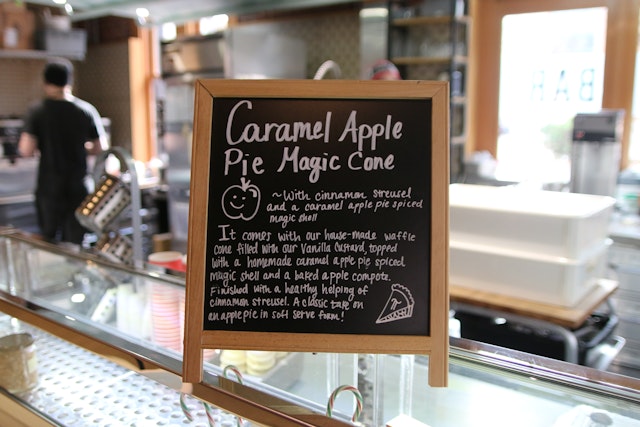 Caramel Apple
Pie Magic Cone
~ With cinnamon streusel
and a caramel apple pie spiced
magic shell
It comes with our house-made waffle
cone filled with our Vanilla Custard, topped
with a homemade caramel apple pie spiced
magic shell and a baked apple compote.
Finished with a healthy helping of
cinnamon streusel. A classic take on
an apple pie in soft serve form!
BAR